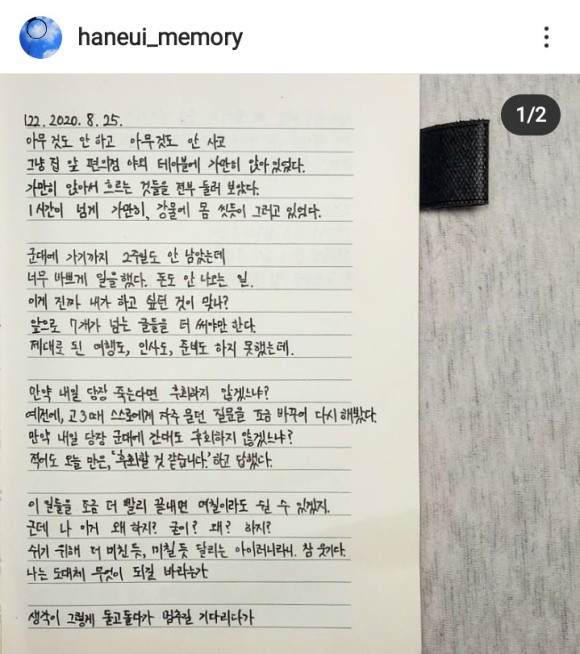 haneui_memory
1/2
122. 2020. 8. 25.
아무 것도 안 하고 아무것도 안 사고
그냥 집 앞 편의점 야외 테이블에 가만히 앉아 있었다.
가만히 앉아서 흐르는 것들을 전부 둘러 보았다.
1시간이 넘게 가만히, 강물에 몸 씻듯이 그러고 있었다.
군대에 가기까지 2주일도 안 남았는데
너무 바쁘게 일을 했다. 돈도 안 나오는 일.
이게 진짜 내가 하고 싶던 것이 맞나?
앞으로 7개가 넘는 글들을 더 써야만 한다.
제대로 된 여행도, 인사도, 준비도 하지 못했는데.
만약 내일 당장 죽는다면 후회하지 않겠느냐?
예전에, 고3때 스스로에게 자주 묻던 질문을 조금 바꾸어 다시 해봤다.
만약 내일 당장 군대에 간대도 후회하지 않겠느냐?
적어도 오늘 만은, '후회할 것 같습니다.' 하고 답했다.
이 일들을 조금 더 빨리 끝내면 며칠이라도 쉴 수 있겠지.
근데 나 이거 왜 하지? 굳이? 왜? 하지?
쉬기 위해 더 미친 듯, 미칠 듯 달리는 아이러니라니. 참 웃기다.
나는 도대체 무엇이 되길 바라는가
생각이 그렇게 돌고 돌다가 멈추길 기다리다가